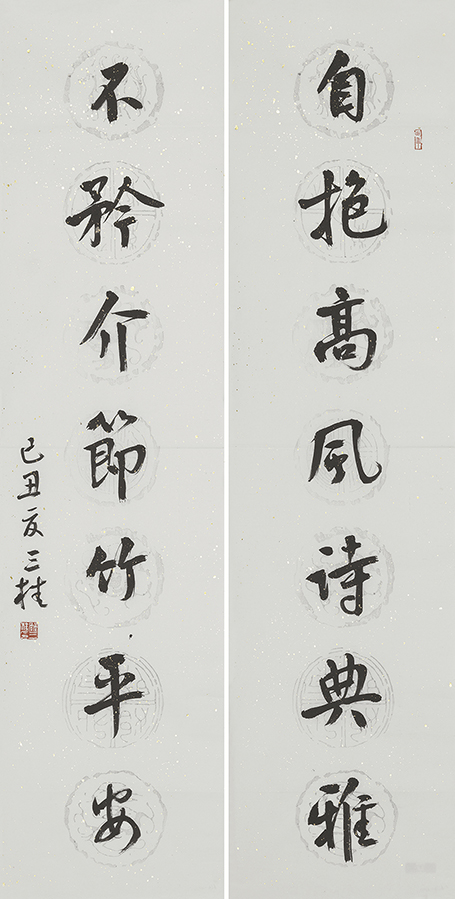 自抱高風诗典雅
不矜介節竹平安
己丑夏三桂